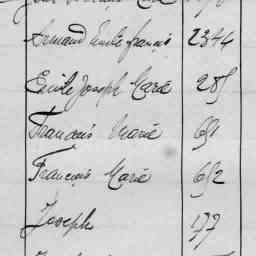 Armand Emile françois 2344
Emile Joseph Marie 285
Francois Marie 691
François Marie 692
Joseph 477